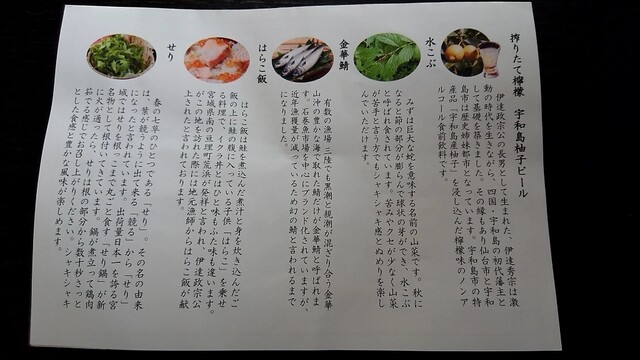 搾りたて檸檬　宇和島柚子ビール
伊達政宗公の長男として生まれた、伊達秀宗は激
動の時代を生きながら、四国・宇和島の初代藩主と
して基礎を築きました。その縁もあり仙台市と宇和
島市は歴史姉妹都市となっています。宇和島市の特
産品「宇和島産柚子」を浸し込んだ檸檬味のノンア
ルコール食前飲料です。
水こぶ
みずは巨大な蛇を意味する名前の山菜です。秋に
なると節の部分が膨らんで球状の芽ができ、水こぶ
と呼ばれ食されています。苦みやクセが少なく山菜
が苦手と言う方でもシャキシャキ感とぬめりを楽し
んでいただけます。
金華鯖
有数の漁場三陸でも黒潮と親潮が混ざり合う金華
山沖の豊かな海で取れた鯖だけが金華鯖と呼ばれま
す。石巻魚市場を中心にブランド化されていますが、
近年漁獲量が減っているため幻の鯖と言われるまで
になりました。
はらこ飯
はらこ飯は鮭を煮込んだ煮汁と身を炊き込んだご
飯の上に鮭の腹に入っている子供「はらこ」を乗せ
る料理で、イクラ丼とはひと味もふた味も違います。
宮城県南の亘理町荒浜が発祥と言われ、伊達政宗公
がこの地を訪れた際には地元漁師からはらこ飯が献
上されたと言われております。
せり
春の七草のひとつである「せり」。その名の由来
は、葉が競うように出て来る「競る」から「せり」
になったと言われています。出荷量日本一を誇る宮
城ではせりを根っこまで丸ごと食す「せり鍋」が新
名物として根付いてきています。鍋が煮立って鶏肉
に火が通ったら、せりは根の部分から数十秒さっと
茹でる感じでお召し上がりください。シャキシャキ
とした食感と豊かな風味が楽しめます。